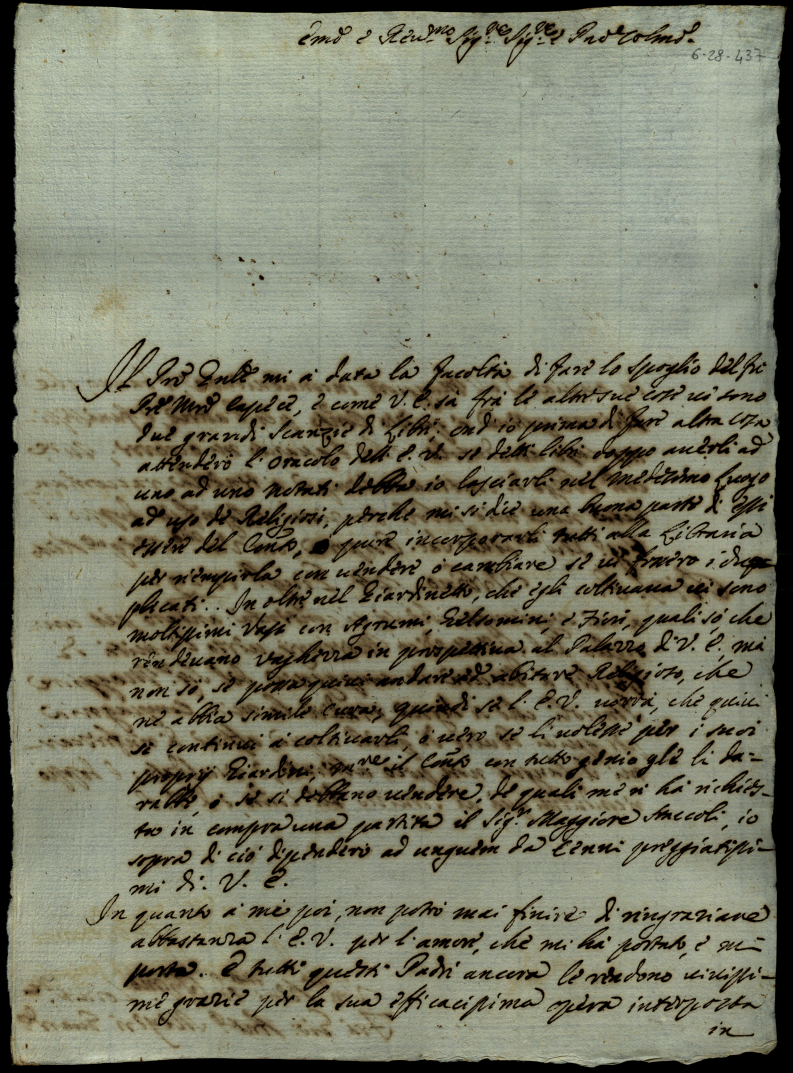 Emõ e Reu.mo Sig.re Sig.re e Prõe Colmõ
6-28-437
Il Prẽ Gnlẽ mi à data la facoltà di fare lo spoglio del fù
Prẽ Mrõ Capece, e come V. E. sà frà le altre sue cose ui sono
due grandi Scanzie di Libri; ond' io prima di fare altra cosa
attenderò l'oracolo dell' E. V. se detti libri doppo auerli ad
uno ad uno notati debba io lasciarli nel medesimo luogo
ad uso de Religiosi, perche mi si dice una buona parte di essi
essere del Conto, o pure incorporarli tutti alla Libraria
per riempirla con uendere ò cambiare se ui fussero i dup
plicati. In oltre nel Giardinetto, che egli coltiuaua ui sono
moltissimi Vasi con Agrumi, Gelsomini, e Fiori, quali sò che
rendeuano uaghezza in prospettiua al Palazzo di V. E. mà
non sò, se possa quiui andare ad abitare Religioso, che
ne abbia simile cura, quindi se l' E. V. uorrà, che quiui
si continui à coltiuarli, ò uero se li uolesse per i suoi
proprij Giardini, il Conto con tutto genio glẽ li da=
rebbe, ò se si debbano uendere, de quali me n' hà richies=
to in compra una partita il Sig.r Maggiore Stuccoli, io
sopra di ciò dipenderò ad unguem da Cenni preggiatissi=
mi di V. E.
In quanto à me poi, non potrò mai finire di ringraziare
abbastanza l' E. V. per l'amore, che mi hà portato, e mi
porta. E tutti questi Padri ancora le rendono uiuissi=
me grazie per la sua efficacissima opera interposta
in